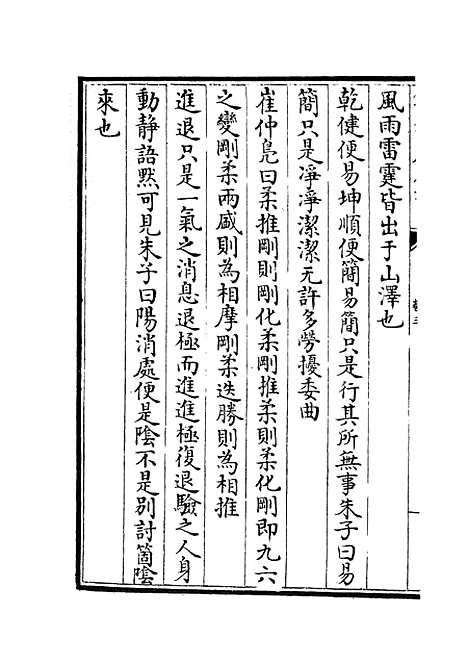 風雨雷霆皆出于山澤也
乾健便易坤順便簡易簡只是行其所無事朱子曰易
簡只是凈凈潔潔无許多勞擾委曲
崔仲鳧曰柔推剛則剛化柔剛推柔則柔化剛即九六
之變剛柔兩盛則為相摩剛柔迭勝則為相推
進退只是一氣之消息退極而進進極復退驗之人身
動静語黙可見朱子曰陽消處便是陰不是别討箇陰
來也